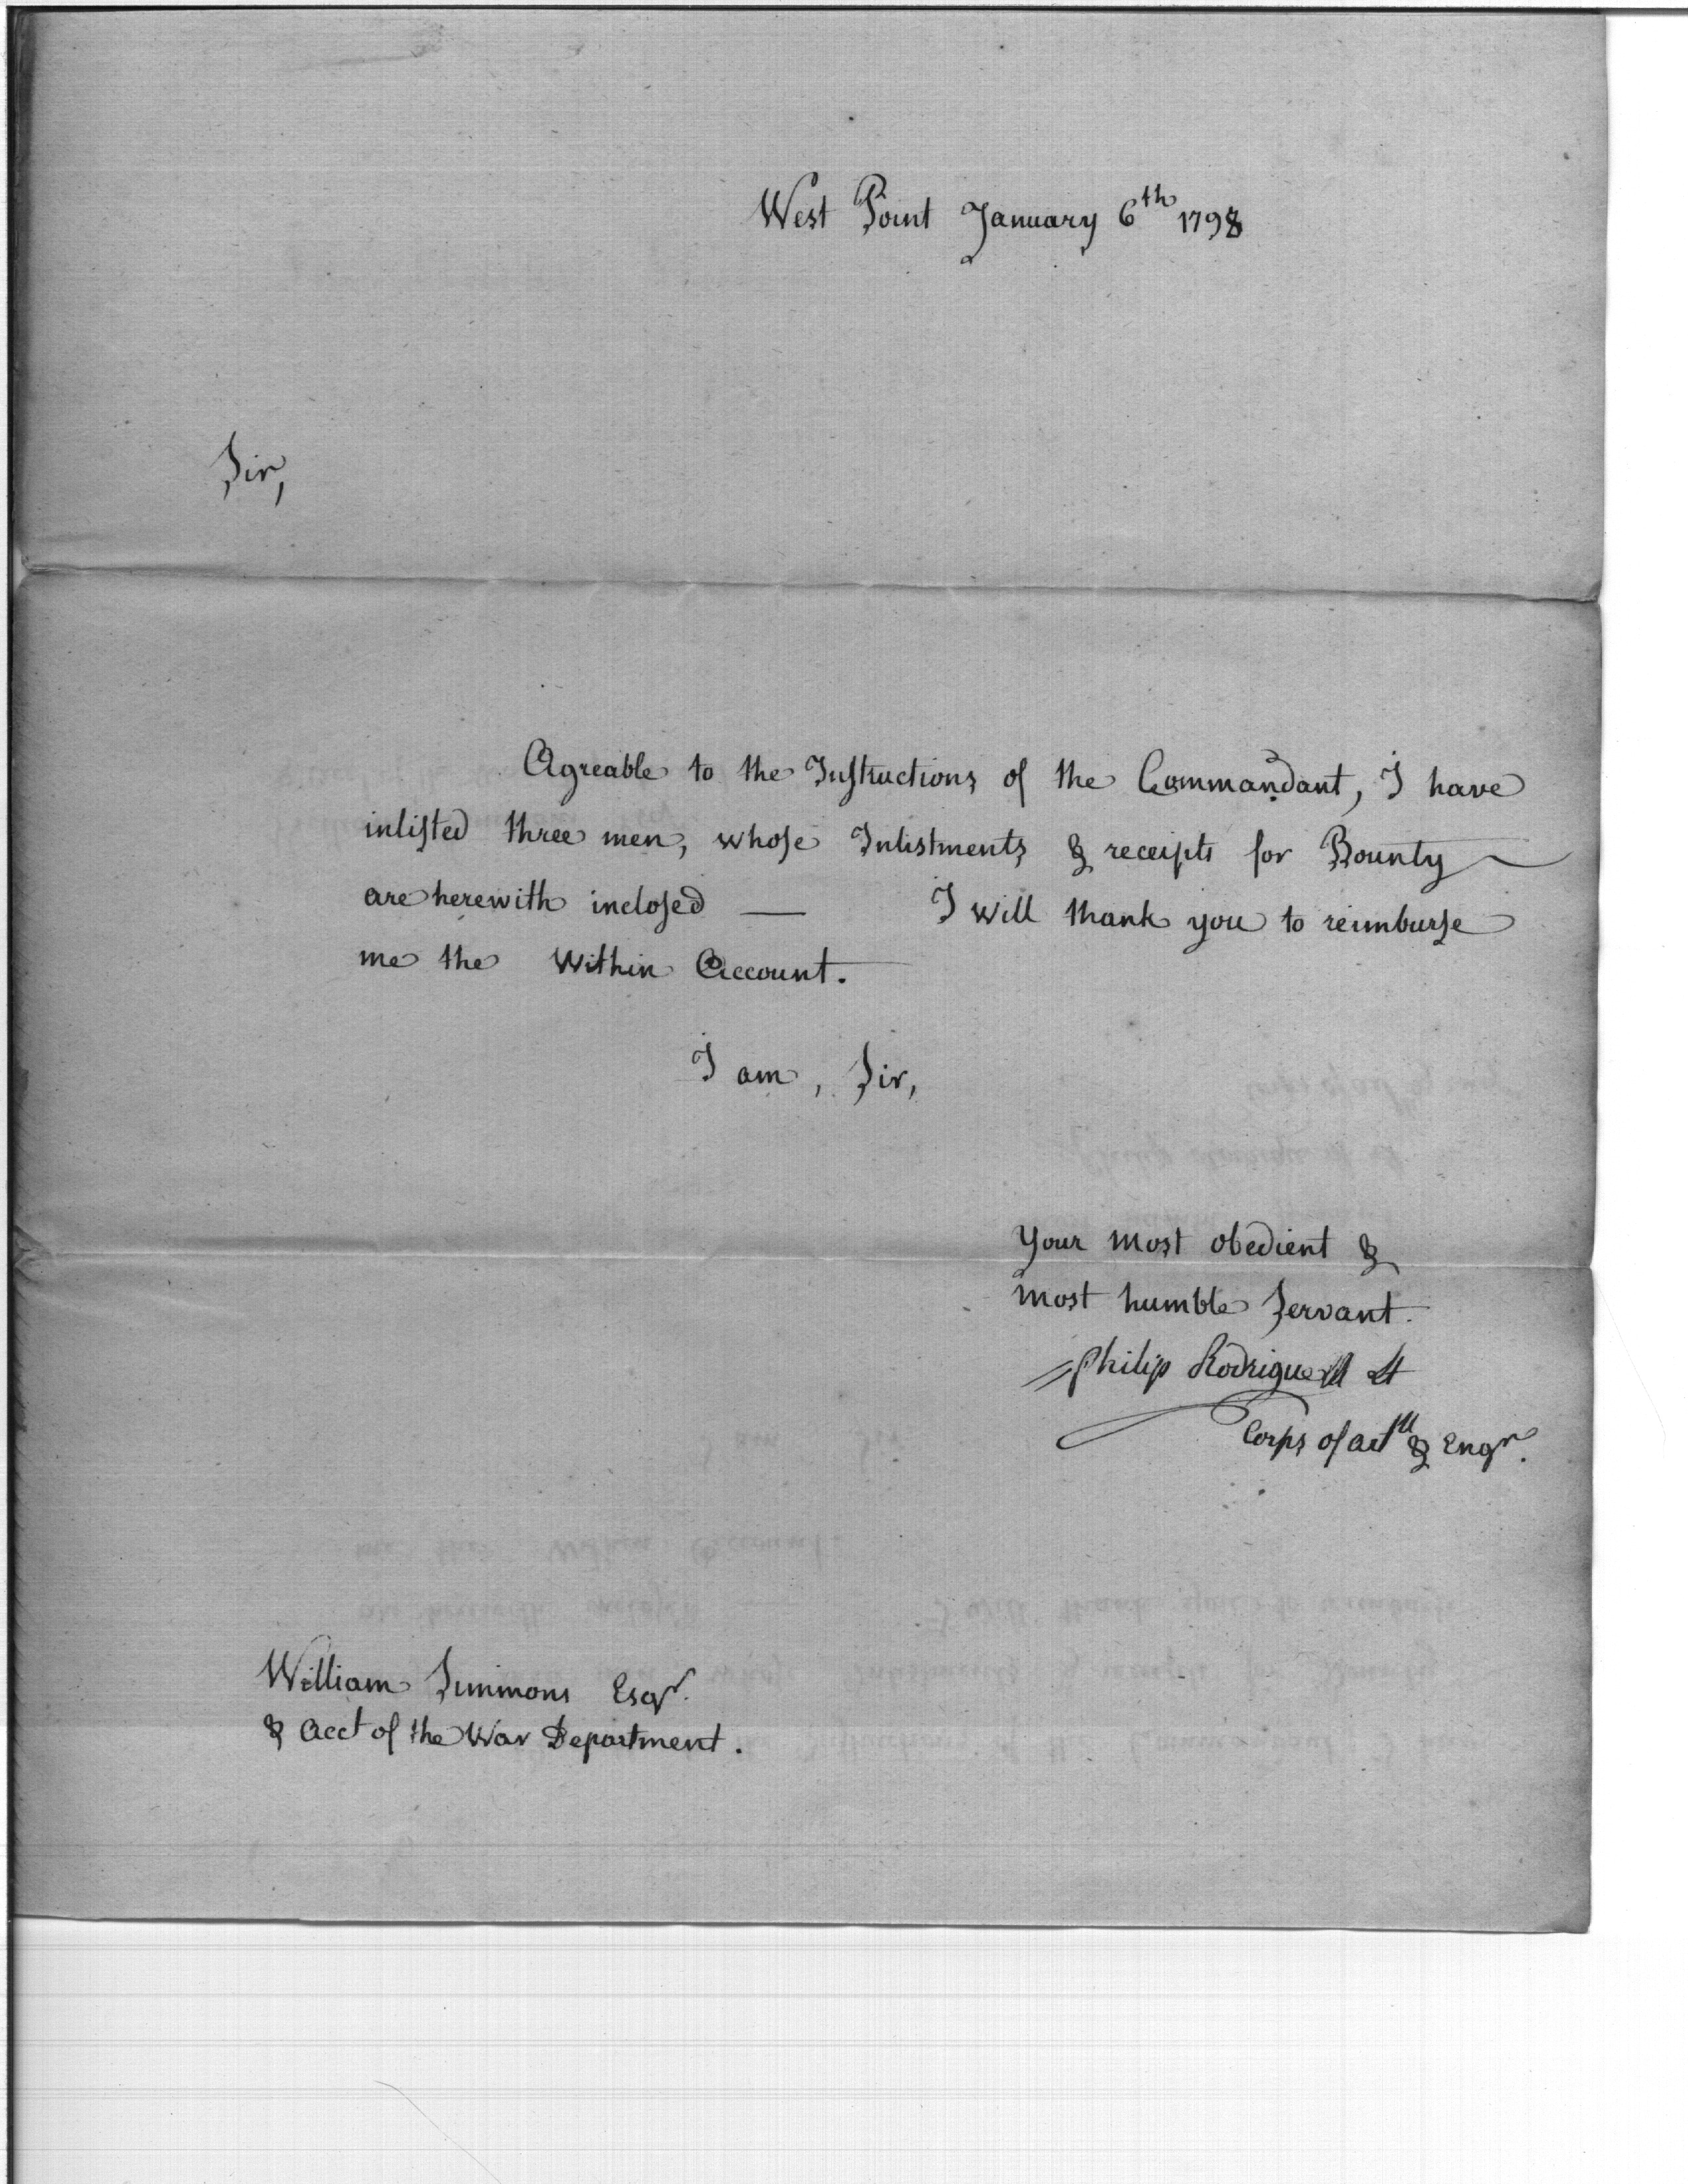 West Point January 6th 1798
Sir,
Agreable to the Instructions of the Commandant, I have
inlisted three men, whose Inlistments & receipts for Bounty
are herewith inclosed — I will thank you to reimburse
me the Within Account.
I am, Sir,
Your most obedient &
most humble Servant.
Philip Rodrigue Lt
Corps of artll & Engrs.
William Simmons Esqr.
& Acct of the War Department.